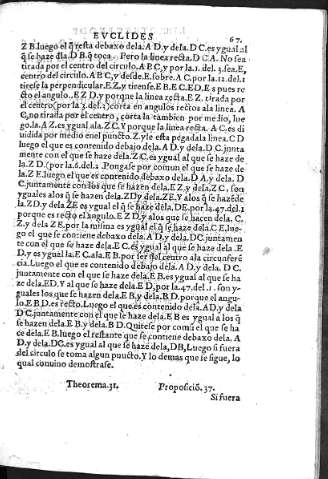 EVCLIDES 67.
Z B. luego el q̃ resta debaxo dela. A D. y dela. D C. es ygual al
q̃ se haze dla. D B. q̃ toca. Pero la linea recta. D C A. No sea
tirada por el centro del circulo. A B C, y por la. 1. del. 3. sea. E,
centro del circulo. A B C, y desde. E. sobre. A C. por la. 12. del. 1
tirese la perpendicular. E Z. y tirense. E B. E C. E D. E s pues re-
cto el angulo. E Z D. y porque la linea recta. E Z. tirada por
el centro (por la 3. del. 3) corta en angulos rectos ala linea. A
C, no tirada por el centro, corta la tambien por medio, lue
go la. A Z. es ygual ala. Z C. Y porque la linea recta. A C. es di
uidida por medio enel pũcto. Z. y le esta pegada la linea. C D
luego el que es contenido debajo dela. A D. y dela. D C. junta
mente con el que se haze dela. Z C. es ygual al que se haze de
la. Z D. (por la. 6. del. 2. Pongase por comun el que se haze de
la. Z E. luego el que es contenido debaxo dela. D A. y dela. D
C. juntamente con los que se hazen dela. E Z. y dela. Z C. son
yguales alos q̃ se hazen dela. ZD y dela. ZE. Y alos q̃ se hazẽ de
la. ZD. y dela ZE es ygual el q̃ se haze dela. DE. por la. 47. del. 1
porque es recto el angulo. E Z D. y alos que se hazen dela. C.
Z. y dela Z E. por la misma es ygual el q̃ se haze dela. C E, lue-
go el que se contiene debaxo dela. A D. y dela. DC. juntamen
te con el que se haze dela. E C. es ygual al que se haze dela. E
D. y es ygual la. E C. ala. E B. por ser del centro ala circunferẽ
cia. Luego el que es contenido debajo dela. A D. y dela. D C.
juntamente con el que se haze dela. E B. es ygual al que se ha
ze dela. ED. Y al que se haze dela. E D. por la. 47. del. 1. son y-
guales los que se hazen dela. E B. y dela. B D. porque el angu-
lo. E B D. es recto. Luego el que es contenido dela. AD. y dela
D C. juntamente con el que se haze dela. E B es ygual a los q̃
se hazen dela. E B. y dela. B D. Quitese por comũ el que se ha
ze dela. E B. luego el restante que se contiene debaxo dela. A
D. y dela. DC. es ygual al que se haze dela, DB, Luego si fuera
del circulo se toma algun puncto. Y lo demas que se sigue, lo
qual conuino demostrase.
Theorema. 31. Proposició. 37.
Si fuera